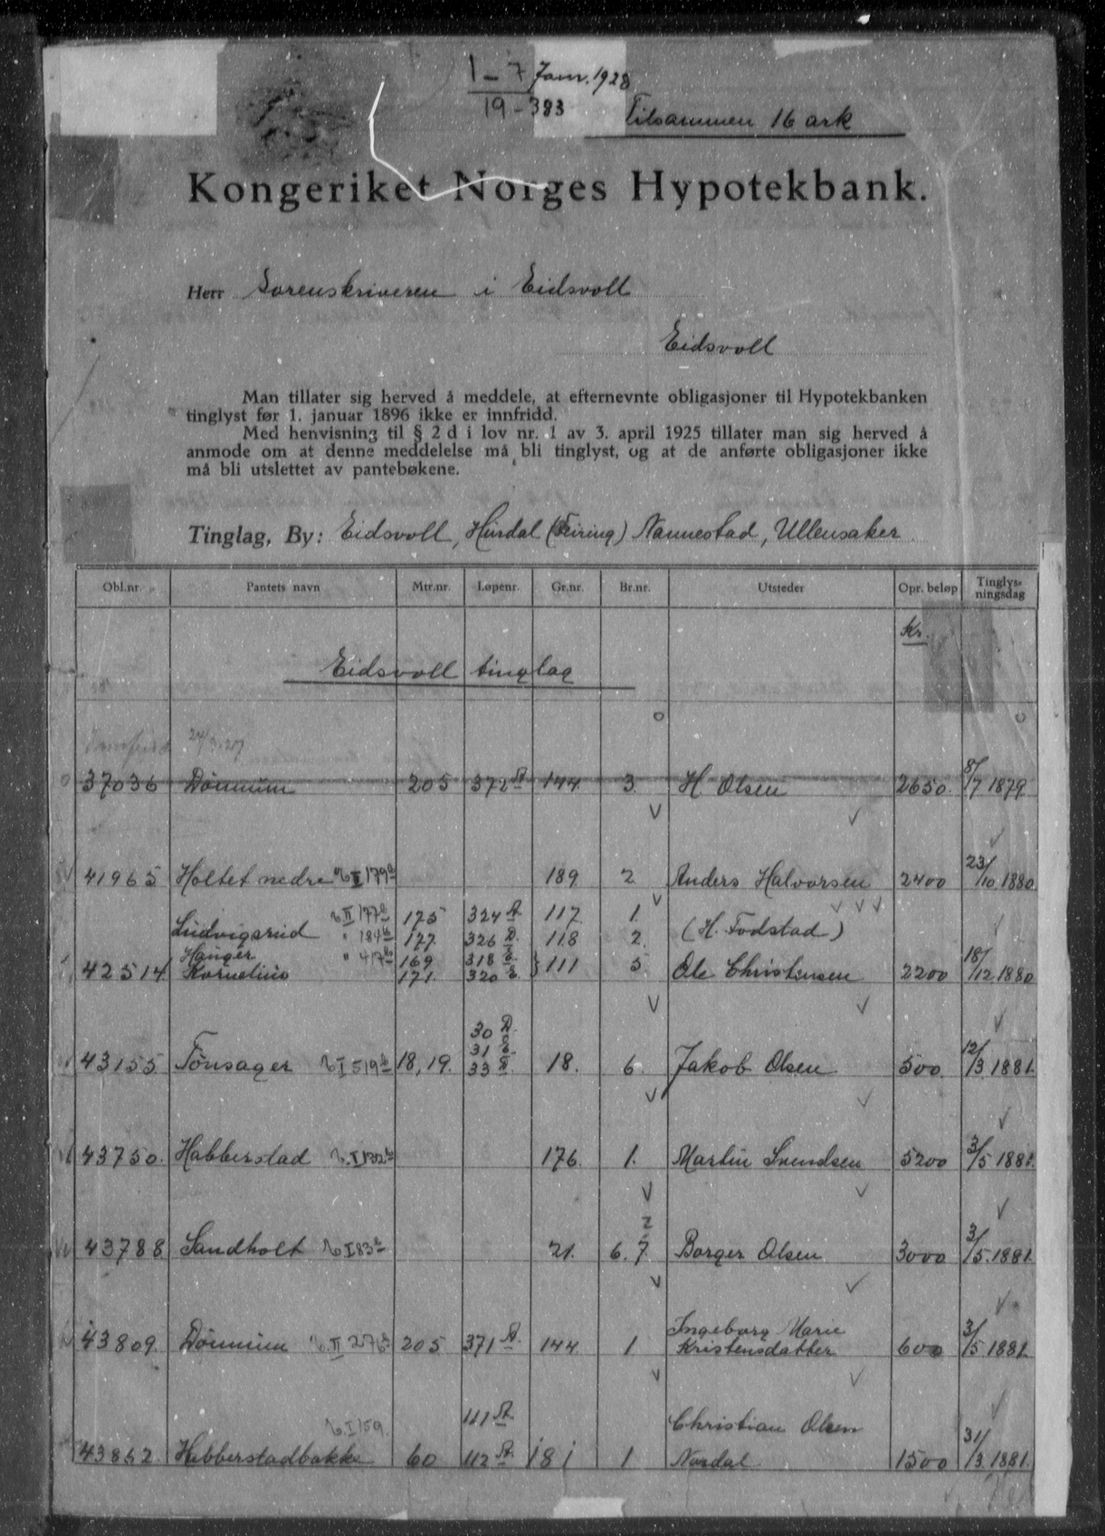 1 – 7 Janr. 1928
19 – 383
Tilsammen 16 ark
Kongeriket Norges Hypotekbank.
Herr Sorenskriveren i Eidsvoll
Eidsvoll
Man tillater sig herved å meddele, at efternevnte obligasjoner til Hypotekbanken
tinglyst før 1. januar 1896 ikke er innfridd.
Med henvisning til § 2 d i lov nr. 1 av 3. april 1925 tillater man sig herved å
anmode om at denne meddelelse må bli tinglyst, og at de anførte obligasjoner ikke
må bli utslettet av pantebøkene.
Tinglag, By: Eidsvoll, Hurdal (Feiring) Nannestad, Ullensaker
Obl.nr. Pantets navn Mtr.nr. Løpenr. Gr.nr. Br.nr. Utsteder Opr. beløp Tinglys-
ningsdag
Kr.
Eidsvoll tinglag
37036 Dønnum 205 372 a 144 3. H. Olsen 2650. 8/7 1879
41965 Holtet nedre II 179 b 189 2 Anders Halvorsen 2400 23/10 1880
Ludvigsrud II 177 b 175 324 a 117 1. (H. Fodstad)
" 184 b 177. 326 b. 118 2.
Hauger " 417 b 169 318 b.
42514 Kornelius 171. 320 b. } 111 5. Ole Christensen 2200 18/12 1880
30 b.
31 b.
43155 Tønsager I 519 b 18, 19. 33 a 18. 6. Jakob Olsen 500 12/3 1881.
43750. Habberstad I 132 b 176. 1. Martin Svendsen 5200 3/5 1881.
2
43788 Sandholt I 83 b 21. 6. 7. Borger Olsen 3000 3/5. 1881.
43809. Dønnum II 276 b 205 371 a. 144 1 Ingeborg Marie
Kristensdatter 600 3/5 1881.
I 159. 111 a. Christian Olsen
43852. Habberstadbakke 60 112 a 81 1 Nordal 1500 31/3. 1881.